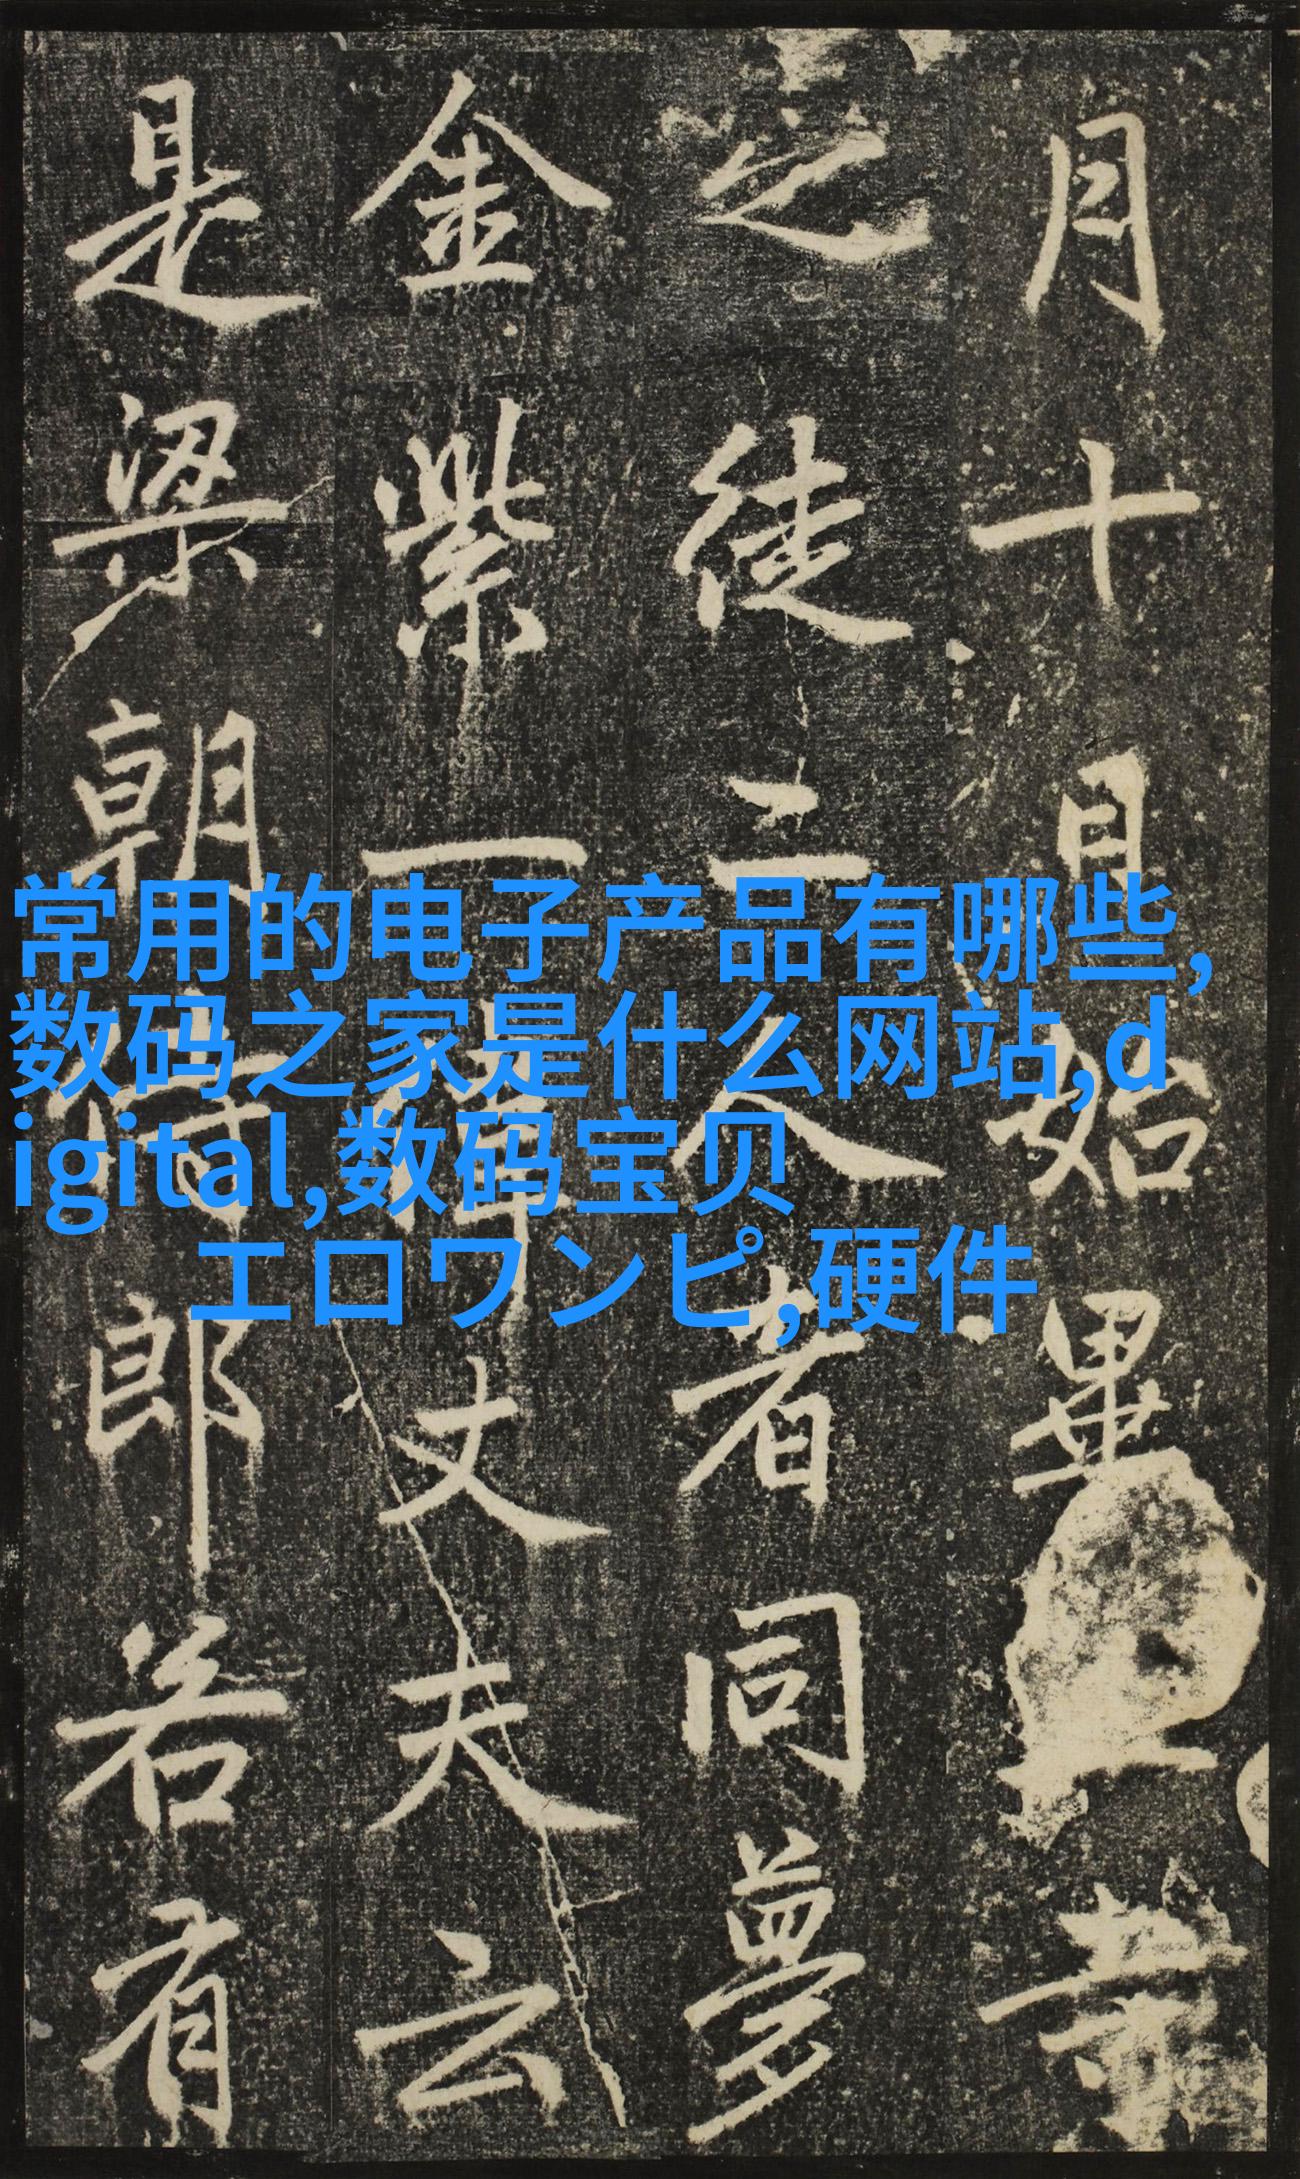 月十月始畢
之徒三人者同夢
金紫一
丈夫云
是梁朝侍郎若有
常用的电子产品有哪些,
数码之家是什么网站,d
igital,数码宝贝
エロワンピ,硬件